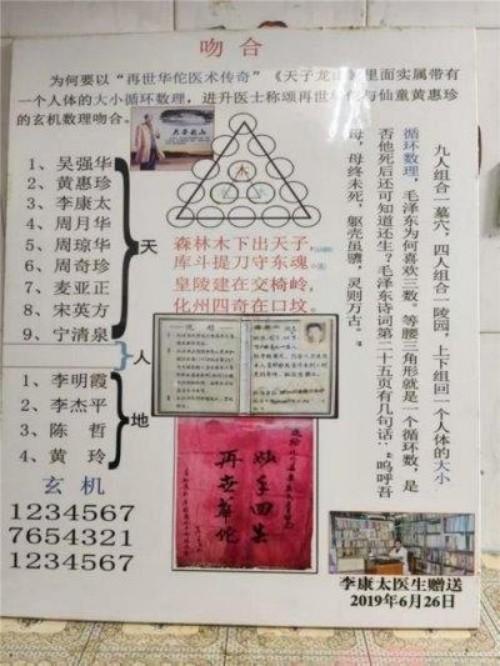 吻合
为何要以“再世华佗医术传奇”《天子龙山》里面实属带有
一个人体的大小循环数理，进升医士称颂再世华佗与仙童黄惠珍
的玄机数理吻合。
1、吴强华
2、黄惠珍
3、李康太
4、周月华
5、周琼华
6、周奇珍
7、麦亚正
8、宋英方
9、宁清泉
天
人
1、李明霞
2、李杰平
3、陈 哲
4、黄 玲
地
玄机
1234567
7654321
1234567
森林木下出天子，
库斗提刀守东魂。
皇陵建在交椅岭，
化州四奇在口坟。
九人组合一墓穴，四人组合一陵园，上下组回一个人体的大小
循环数理，毛泽东为何喜欢三数。等腰三角形就是一个循环数，是
否他死后还可知道还生？毛泽东诗词第二十五页有几句话：“呜呼吾
母，母终未死，躯壳虽隳，灵则万古。”
妙手回生
再世华佗
李康太医生赠送
2019年6月26日